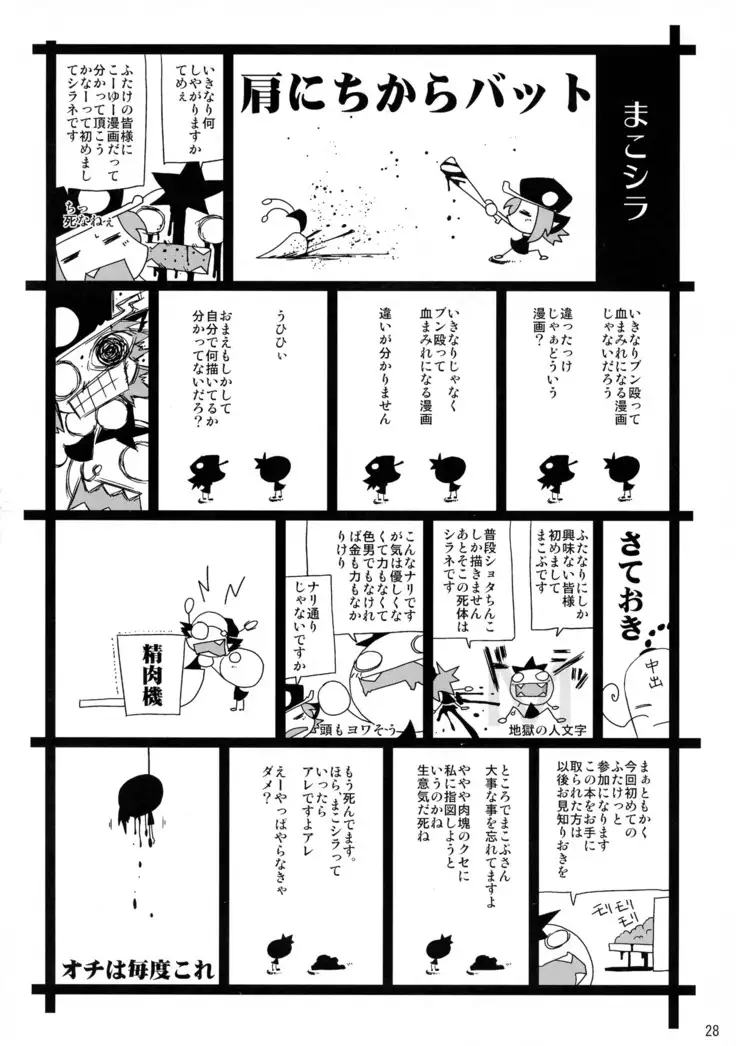 まこシラ
肩にちからバット
いきなり何
しやがりますか
てめぇ
ふたけの皆様に
こーゆー漫画だって
分かって頂こう
かなーって初めまし
てシラネです
ちっ
死なねぇ
いきなりブン殴って
血まみれになる漫画
じゃないだろう
違ったっけ
じゃぁどういう
漫画？
いきなりじゃなく
ブン殴って
血まみれになる漫画
違いが分かりません
うひひぃ
おまえもしかして
自分で何描いてるか
分かってないだろ？
さておき
中出
ふたなりにしか
興味ない皆様
初めまして
まこぶです
普段ショタちんこ
しか描きません
あとそこの死体は
シラネです
地獄の人文字
こんなナリです
が気は優しくな
くて力もなくて
色男でもなけれ
ば金も力もなか
りけり
ナリ通り
じゃないですか
頭もヨワそう
精肉機
まぁともかく
今回初めての
ふたけっと
参加になります
この本をお手に
取られた方は
以後お見知りおきを
モリモリモリ
ところでまこぶさん
大事な事を忘れてますよ
ややや肉塊のクセに
私に指図しようと
いうのかね
生意気だ死ね
もう死んでます。
ほら、まこシラって
いったら
アレですよアレ
えーやっぱやらなきゃ
ダメ？
オチは毎度これ
28